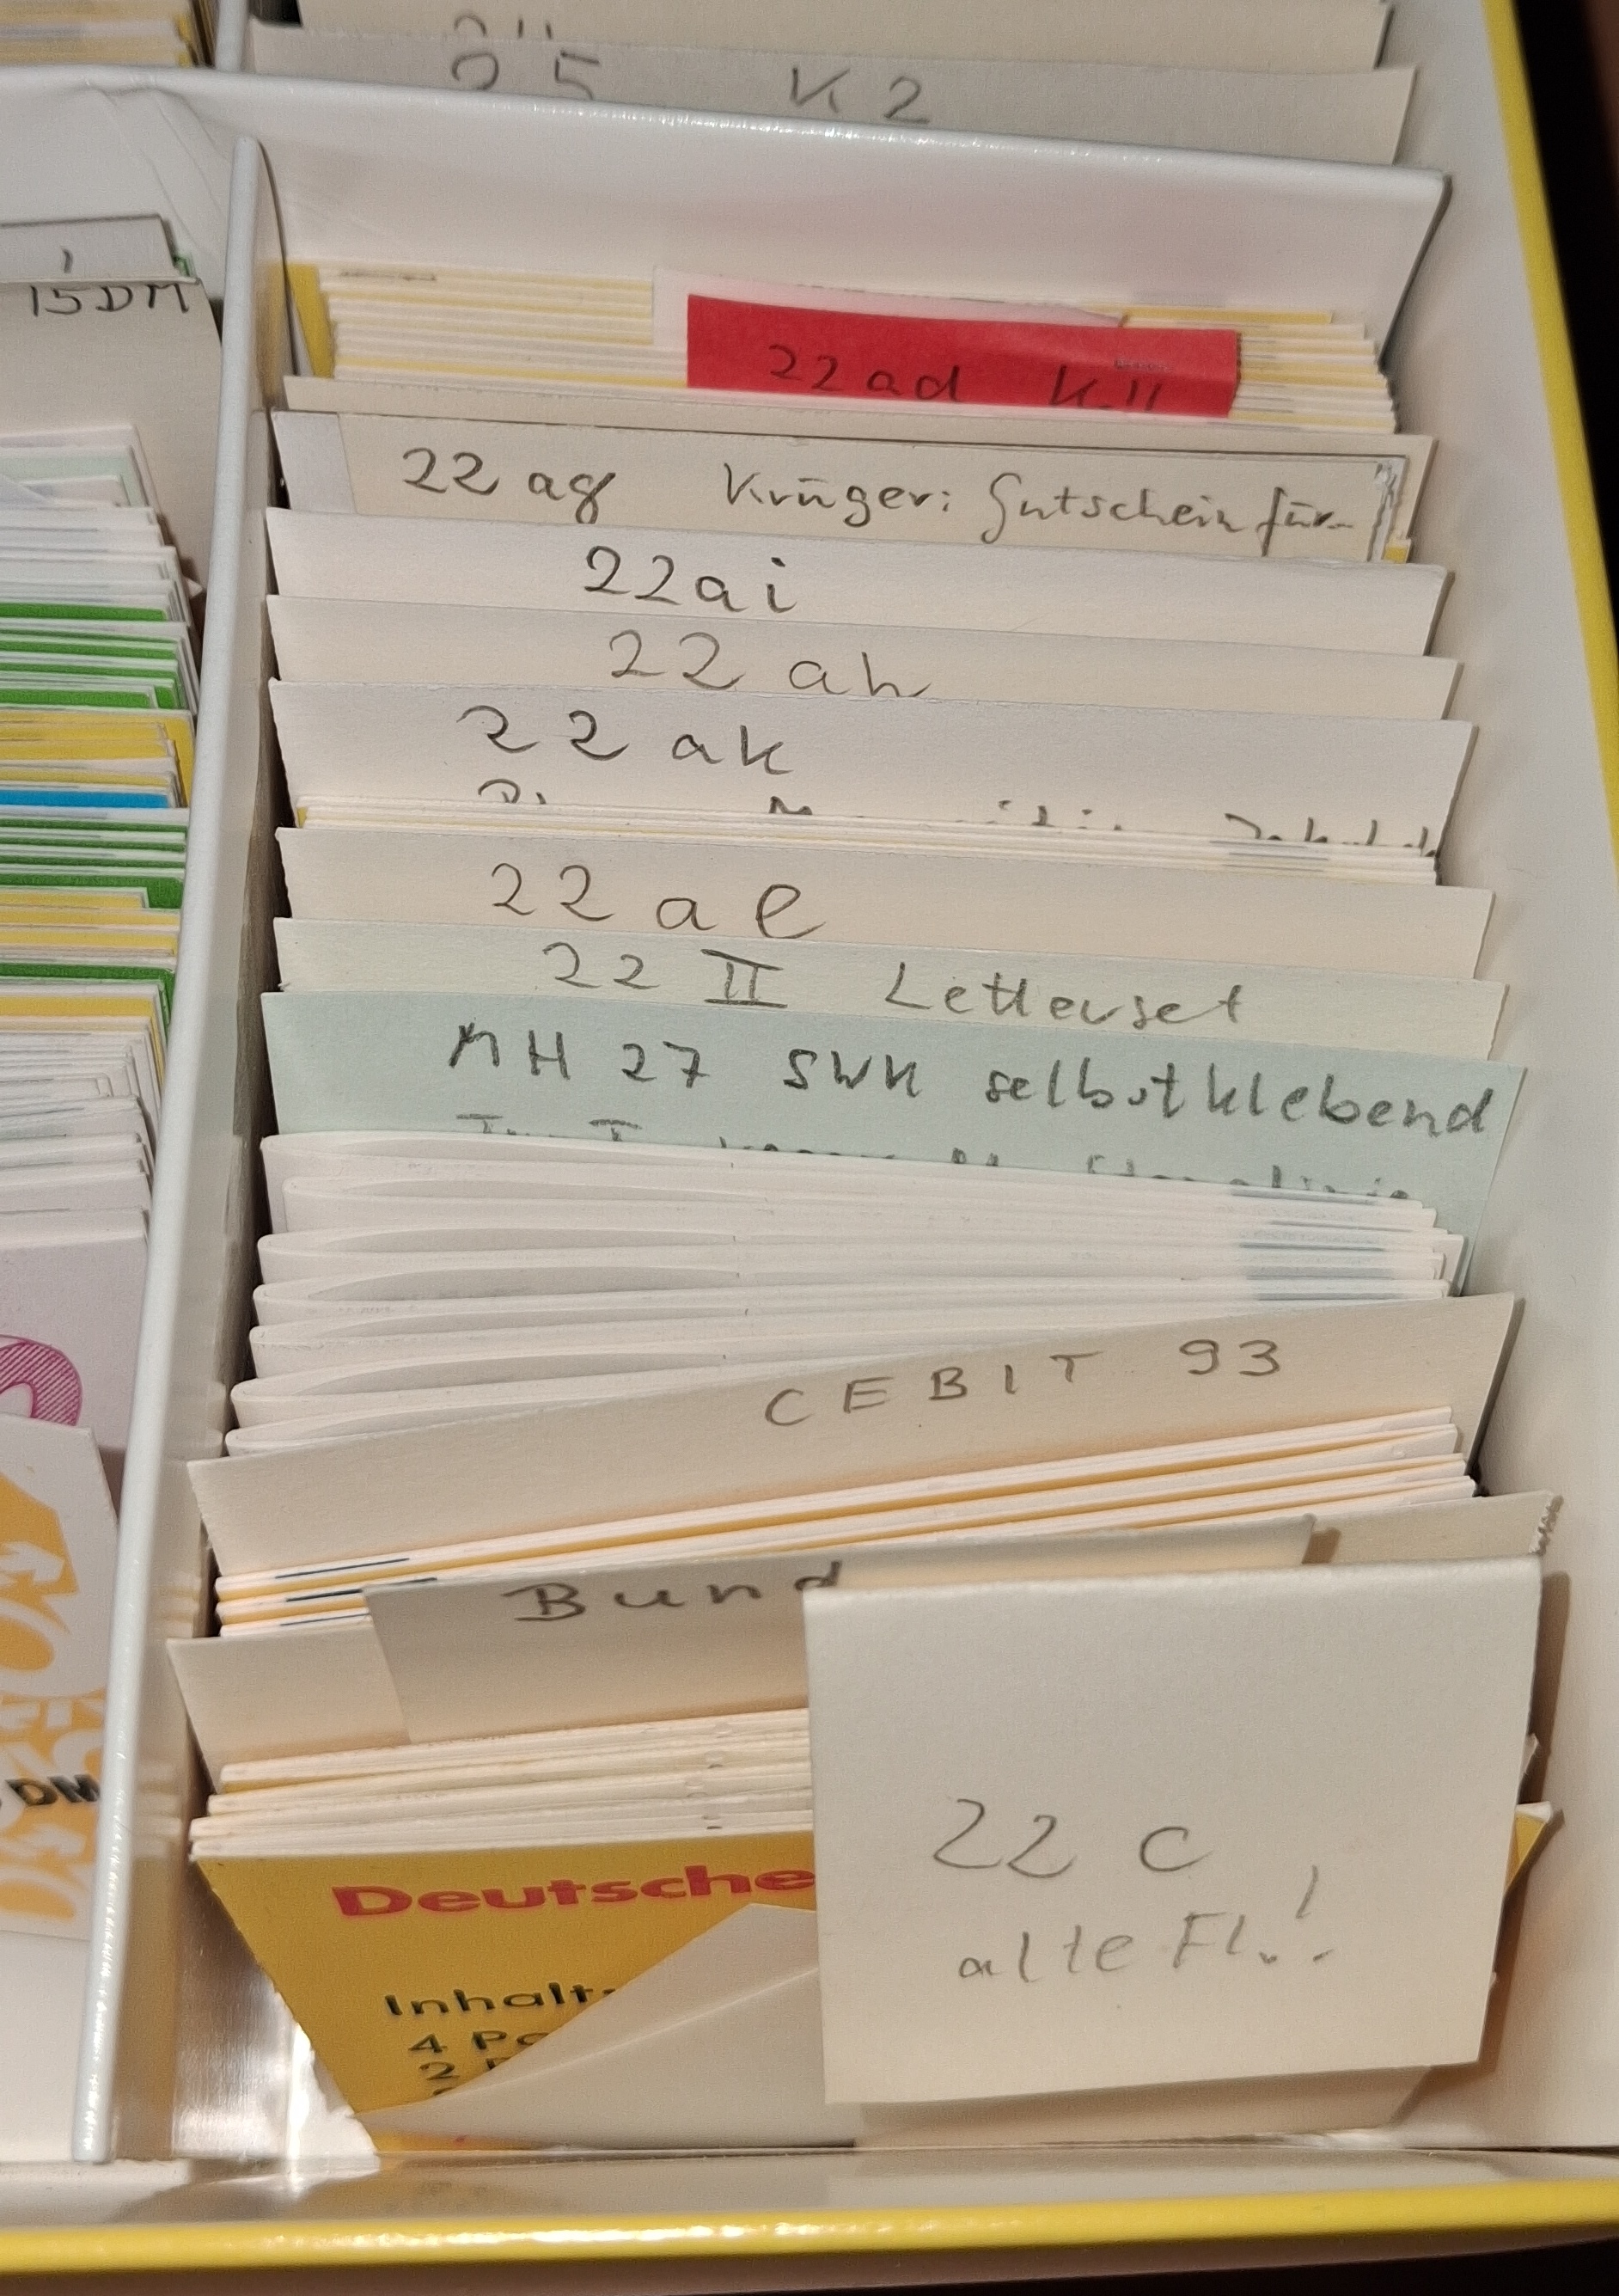 25 K2
15DM
22ad K.11
22 ag Krüger: Gutschein für
22ai
22 ah
22 ak
22 al
22 II Letterset
MH 27 SWK selbstklebend
CEBIT 93
Bund
DM
22 c
alte Fl.!
Deutsche
Inhalt:
4 Po
2